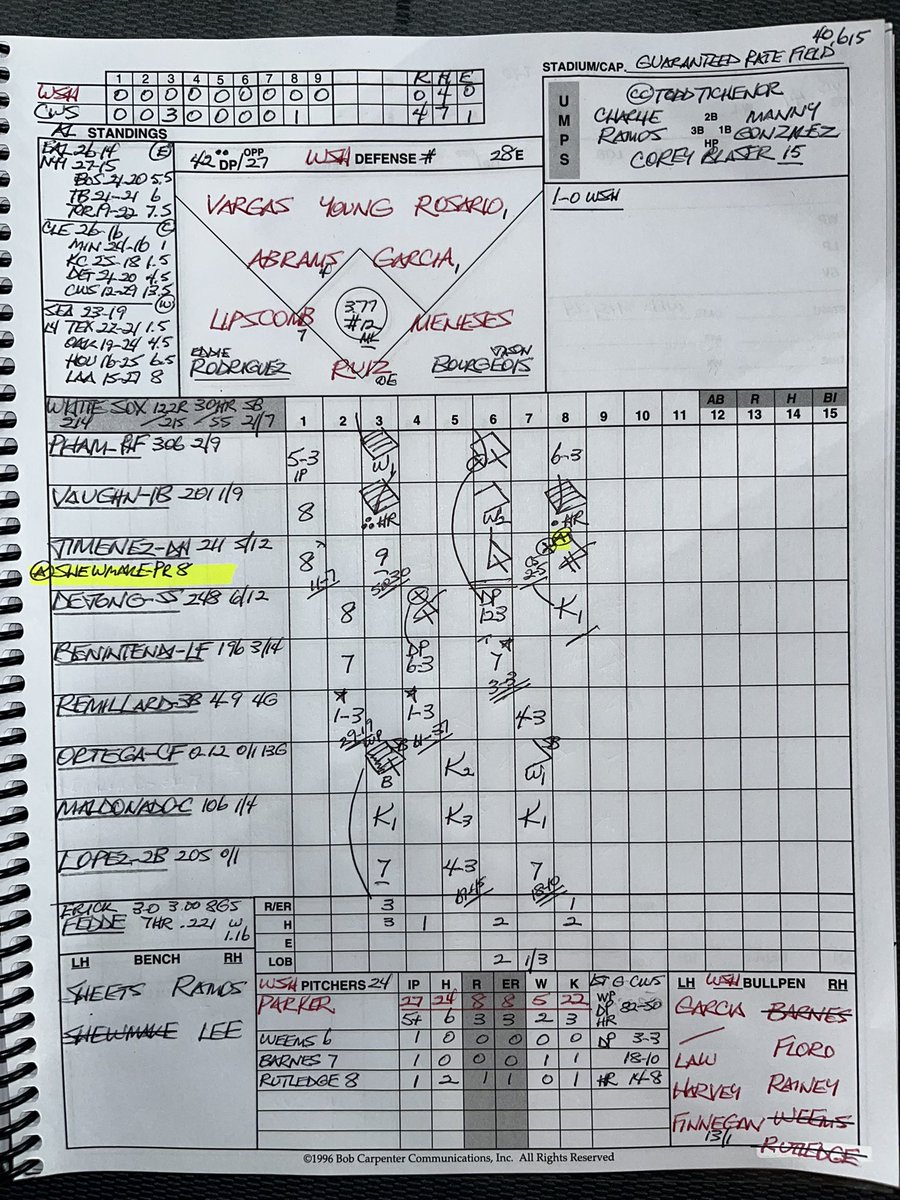 40,615
STADIUM/CAP. GUARANTEED RATE FIELD
1 2 3 4 5 6 7 8 9 R H E
WSH 0 0 0 0 0 0 0 0 0 0 4 0
CWS 0 0 3 0 0 0 0 1 4 7 1
UMPS
CC TODD TICHENOR
CHARLIE RAMOS 2B MANNY
3B 1B GONZALEZ
HP
COREY BLASER 15
AL STANDINGS
BAL 26-14 (E)
NYY 27-15
BOS 21-20 5.5
TB 21-21 6
TOR 19-22 7.5
CLE 26-16 (C)
MIN 24-16 1
KC 25-18 1.5
DET 21-20 4.5
CWS 12-29 13.5
SEA 23-19 (W)
TEX 22-21 1.5
OAK 19-24 4.5
HOU 16-25 6.5
LAA 15-27 8
42 DP/OPP 27 WSH DEFENSE # 28E
1-0 WSH
VARGAS YOUNG ROSARIO
ABRAMS GARCIA
LIPSCOMB 3.77 #12 MENESES
7
EDDIE RODRIGUEZ RUIZ JASON BOURGEOIS
WHITE SOX 122R 30HR SB
214 /215 /55 21/7
1 2 3 4 5 6 7 8 9 10 11 12 13 14 15
AB R H BI
PHAM-RF 306 2/9
5-3 W 6-3
VAUGHN-1B 201 1/9
8 HR W2 HR
JIMENEZ-DH 211 5/12
8 9 CS 2-5
SHEWMAKE-PR 8
DEJONG-SS 248 6/12
8 DP 123 K1
BENINTENDI-LF 196 3/14
7 DP 6-3 7
3-3
REMILLARD-3B 4-9 4G
1-3 1-3 4-3
ORTEGA-CF 0-12 0/1 13G
B K2 W1
MALDONADO-C 106 1/4
K1 K3 K1
LOPEZ-2B 205 0/1
7 4-3 7
18-10
ERICK FEDDE 3-0 3.00 8GS
7HR .221 W 1.16
R/ER 3 1
H 3 1 2 2
E
LOB 2 1/3
LH BENCH RH
SHEETS RAMOS
SHEWMAKE LEE
WSH PITCHERS 24 IP H R ER W K 1ST G-CWS
PARKER 27 24 8 8 5 22 WP
5+ 6 3 3 2 3 DP HR 82-50
WEEMS 6 1 0 0 0 0 0 DP 3-3
BARNES 7 1 0 0 0 1 1 18-10
RUTLEDGE 8 1 2 1 1 0 1 HR 14-8
LH WSH BULLPEN RH
GARCIA BARNES
FLORO
LAW
HARVEY RAINEY
FINNEGAN WEEMS
13/1
RUTLEDGE
©1996 Bob Carpenter Communications, Inc. All Rights Reserved